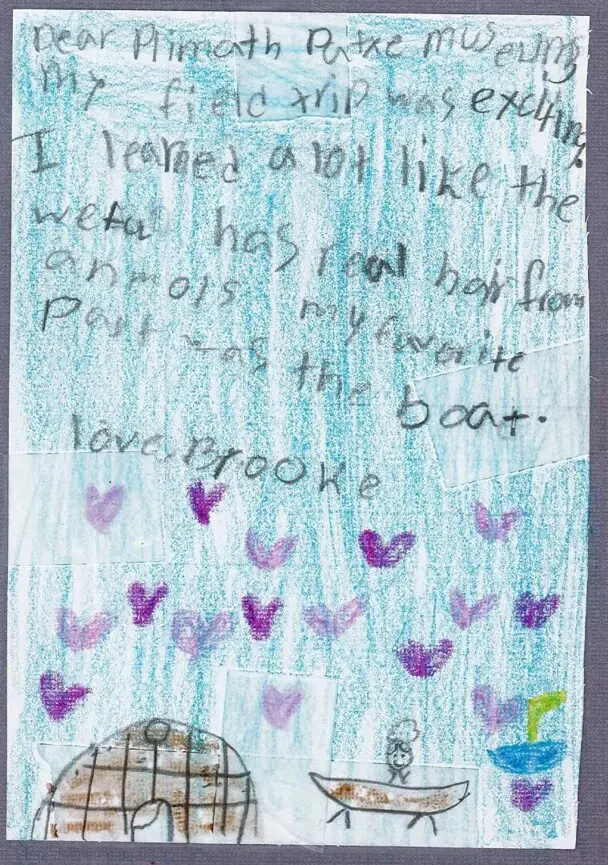 Dear Plimoth Patxe museums
My field trip was exciting.
I learned a lot like the
wetu has real hair from
anmols my favorite
Part was the boat.
love, Brooke